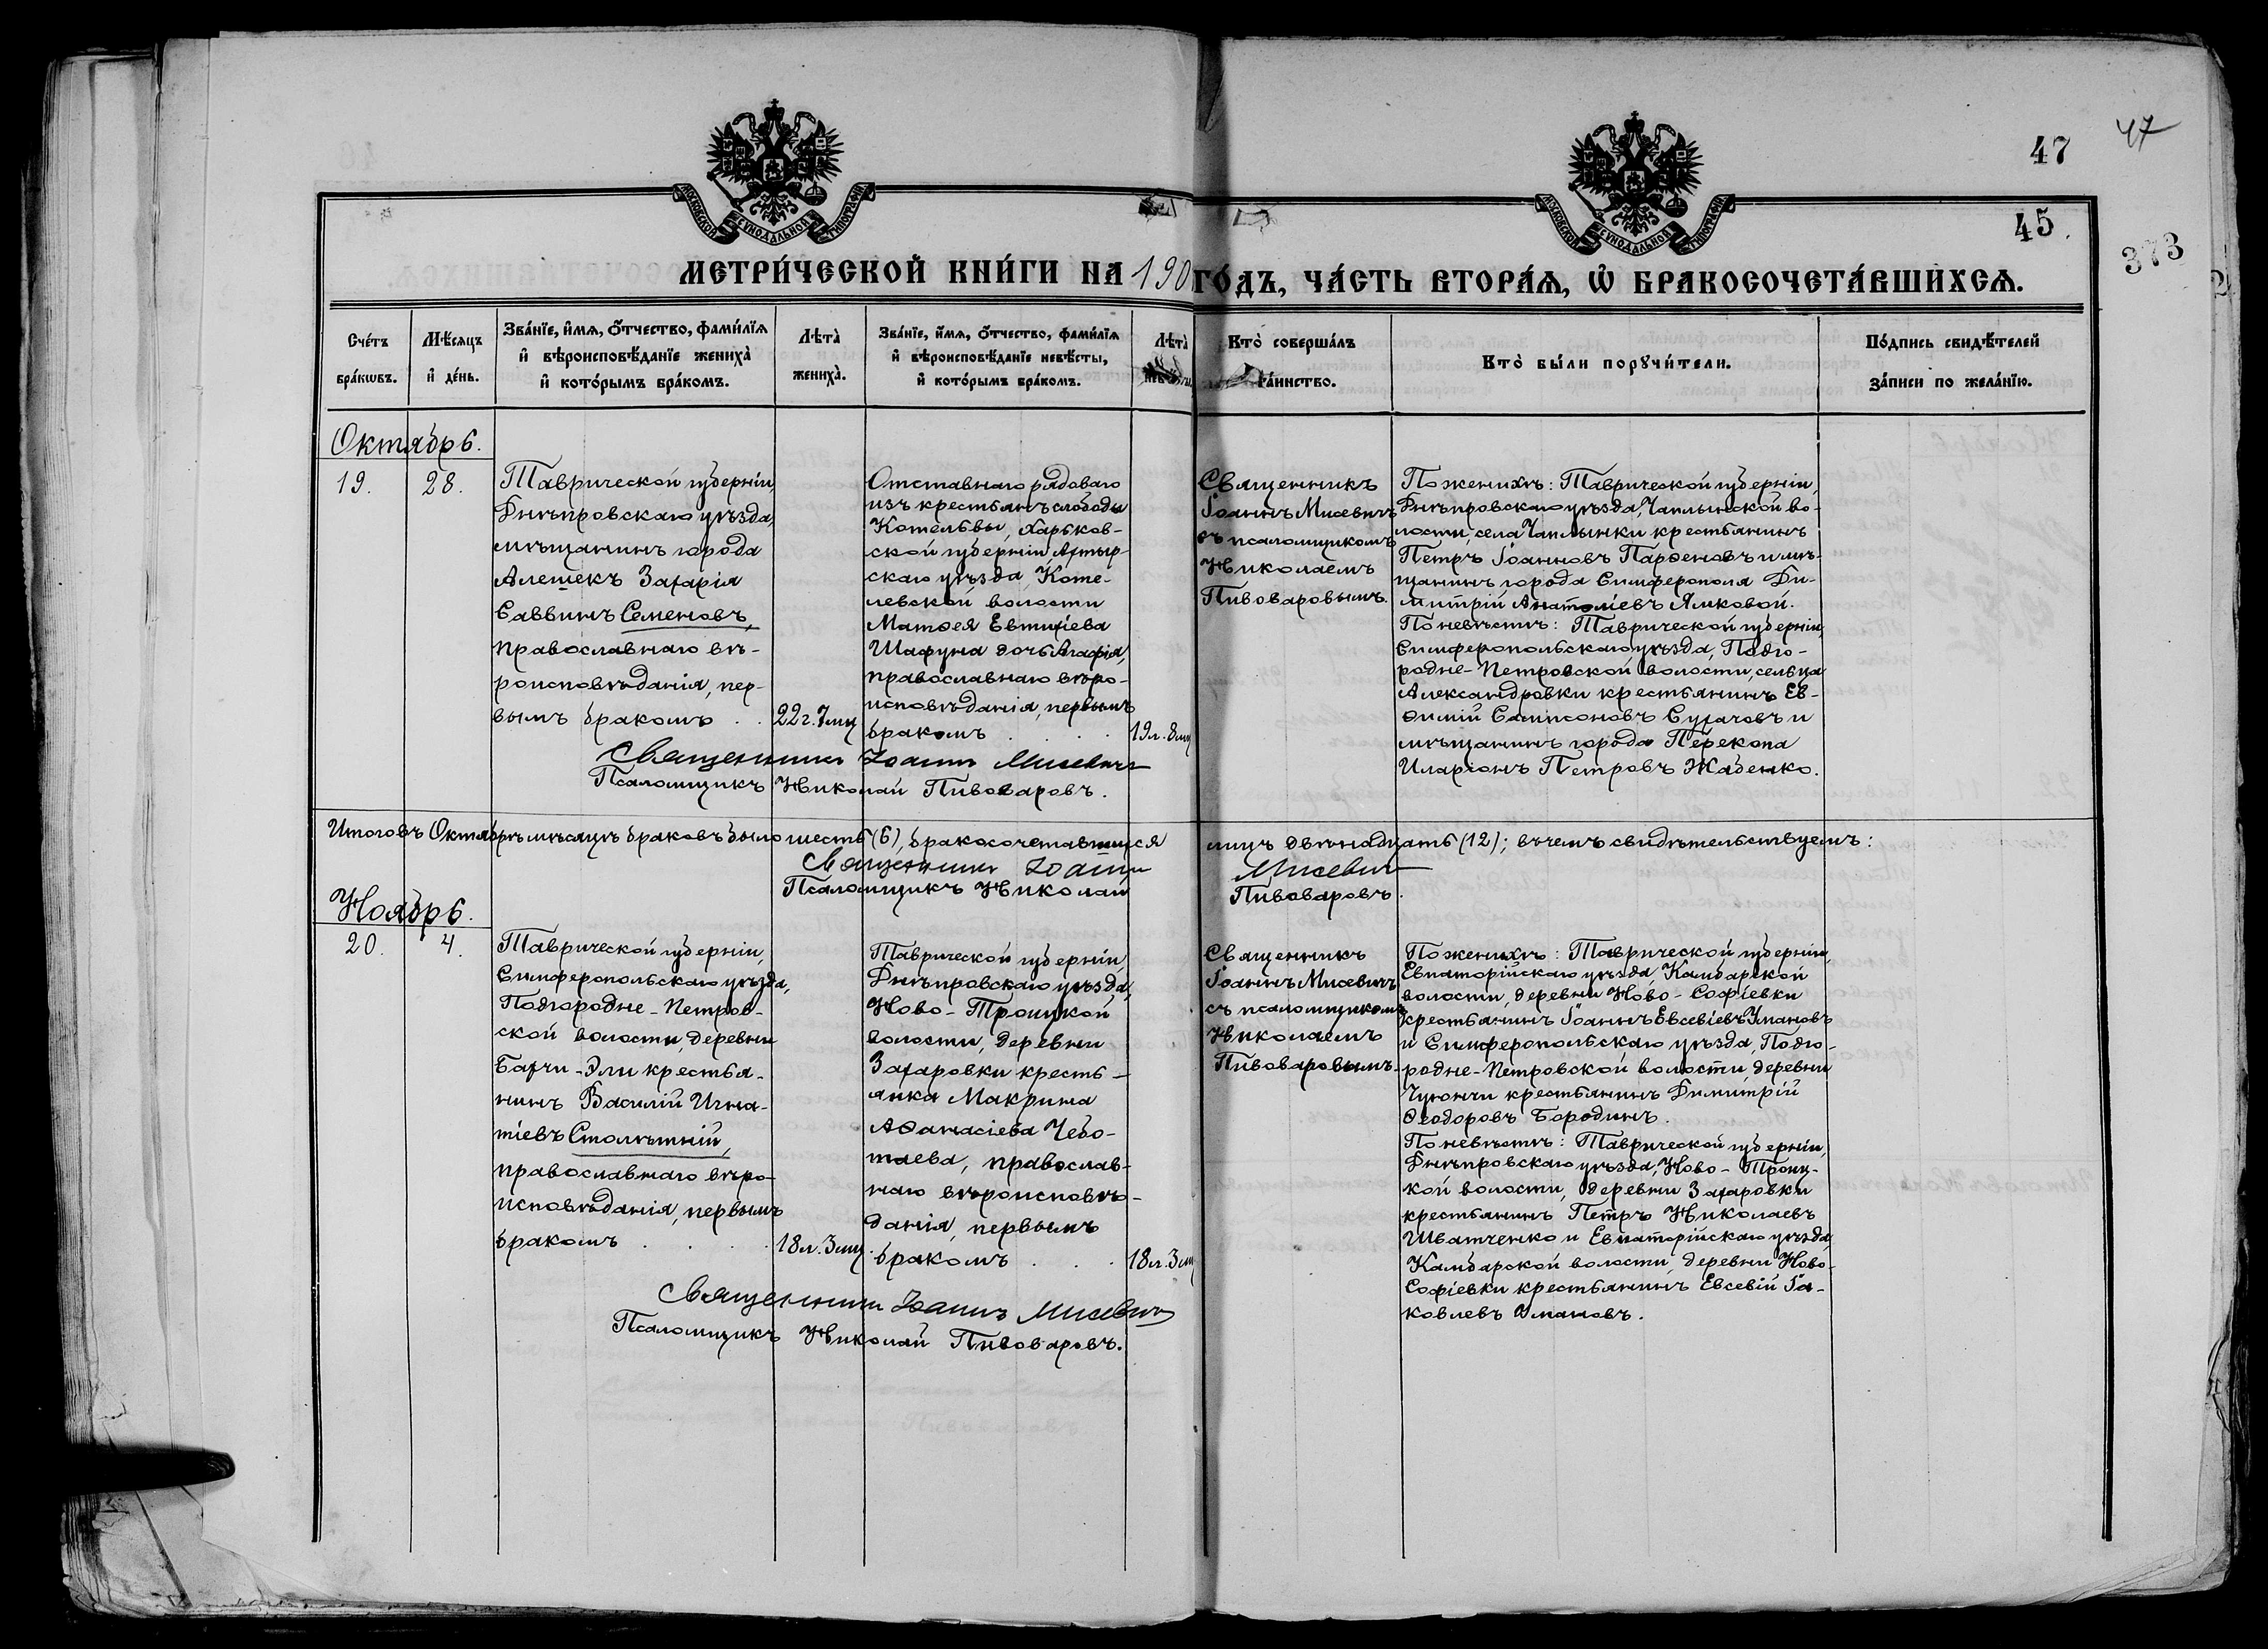 47
47
45.
373
МОСКОВСКОЙ СѴНОДАЛЬНОЙ ТИПОГРАФІИ
МОСКОВСКОЙ СѴНОДАЛЬНОЙ ТИПОГРАФІИ
МЕТРИ́ЧЕСКОЙ КНИ́ГИ НА 190 ГО́ДЪ, ЧА́СТЬ ВТОРА́Ѧ, Ѡ БРАКОСОЧЕТА́ВШИХСѦ.
Сче́тъ
бра́кѡвъ.
Мѣ́сѧцъ
и҆ де́нь.
Зва́нїе, и҆́мѧ, ѻ҆́тчество, фами́лїѧ
и҆ вѣроисповѣ́данїе жениха̀
и҆ кото́рымъ бра́комъ.
Лѣта̀
жениха̀.
Зва́нїе, и҆́мѧ, ѻ҆́тчество, фами́лїѧ
и҆ вѣроисповѣ́данїе невѣ́сты,
и҆ кото́рымъ бра́комъ.
Лѣта̀
Кто̀ соверша́лъ
та́инство.
Кто̀ бы́ли порꙋчи́тели.
По́дпись свидѣ́телей
за́писи по жела́нїю.
Октябрь.
19.
28.
Таврической губерніи,
Днѣпровскаго уѣзда,
мѣщанинъ города
Алешекъ Захарія
Саввинъ Семеновъ,
православнаго вѣ-
роисповѣданія, пер-
вымъ бракомъ . .
22 г. 7 мц
Отставнаго рядоваго
изъ крестьянъ слободы
Котельвы, Харьков-
ской губерніи Ахтыр-
скаго уѣзда, Коте-
левской волости
Матѳея Евтихіева
Шафуна дочь Агафія,
православнаго вѣро-
исповѣданія, первымъ
бракомъ . . . .
19 л. 8 мц
Священникъ
Іоаннъ Мисевичъ
съ псаломщикомъ
Николаемъ
Пивоваровымъ.
По женихѣ: Таврической губерніи,
Днѣпровскаго уѣзда, Чаплынской во-
лости, села Чаплынки крестьянинъ
Петръ Іоанновъ Парѳеновъ и мѣ-
щанинъ города Симферополя Ди-
митрій Анатоліевъ Ямковой.
По невѣстѣ: Таврической губерніи,
Симферопольскаго уѣзда, Подго-
родне-Петровской волости, сельца
Александровки крестьянинъ Ев-
ѳимій Сампсоновъ Сухачовъ и
мѣщанинъ города Перекопа
Иларіонъ Петровъ Жабенко.
Священникъ Іоаннъ Мисевичъ
Псаломщикъ Николай Пивоваровъ.
Итого въ Октябрѣ мѣсяцѣ браковъ было шесть (6), бракосочетавшихся лицъ двѣнадцать (12); въ чемъ свидѣтельствуемъ:
Священникъ Іоаннъ Мисевичъ
Псаломщикъ Николай Пивоваровъ.
Ноябрь.
20.
4.
Таврической губерніи,
Симферопольскаго уѣзда,
Подгородне-Петров-
ской волости, деревни
Бахчи-Эли крестья-
нинъ Василій Игна-
тіевъ Столѣтній,
православнаго вѣро-
исповѣданія, первымъ
бракомъ . . . .
18 л. 3 мц.
Таврической губерніи,
Днѣпровскаго уѣзда,
Ново-Троицкой
волости, деревни
Захаровки кресть-
янка Макрина
Аѳанасіева Чебо-
таева, православ-
наго вѣроисповѣ-
данія, первымъ
бракомъ . . .
18 л. 3 мц
Священникъ
Іоаннъ Мисевичъ
съ псаломщикомъ
Николаемъ
Пивоваровымъ.
По женихѣ: Таврической губерніи,
Евпаторійскаго уѣзда, Камбарской
волости, деревни Ново-Софіевки
крестьянинъ Іоаннъ Евсевіевъ Умановъ
и Симферопольскаго уѣзда, Подго-
родне-Петровской волости деревни
Чуюнчи крестьянинъ Димитрій
Ѳеодоровъ Бородинъ.
По невѣстѣ: Таврической губерніи,
Днѣпровскаго уѣзда, Ново-Троиц-
кой волости, деревни Захаровки
крестьянинъ Петръ Николаевъ
Шватченко и Евпаторійскаго уѣзда,
Камбарской волости, деревни Ново-
Софіевки крестьянинъ Евсевій Іа-
ковлевъ Умановъ.
Священникъ Іоаннъ Мисевичъ
Псаломщикъ Николай Пивоваровъ.